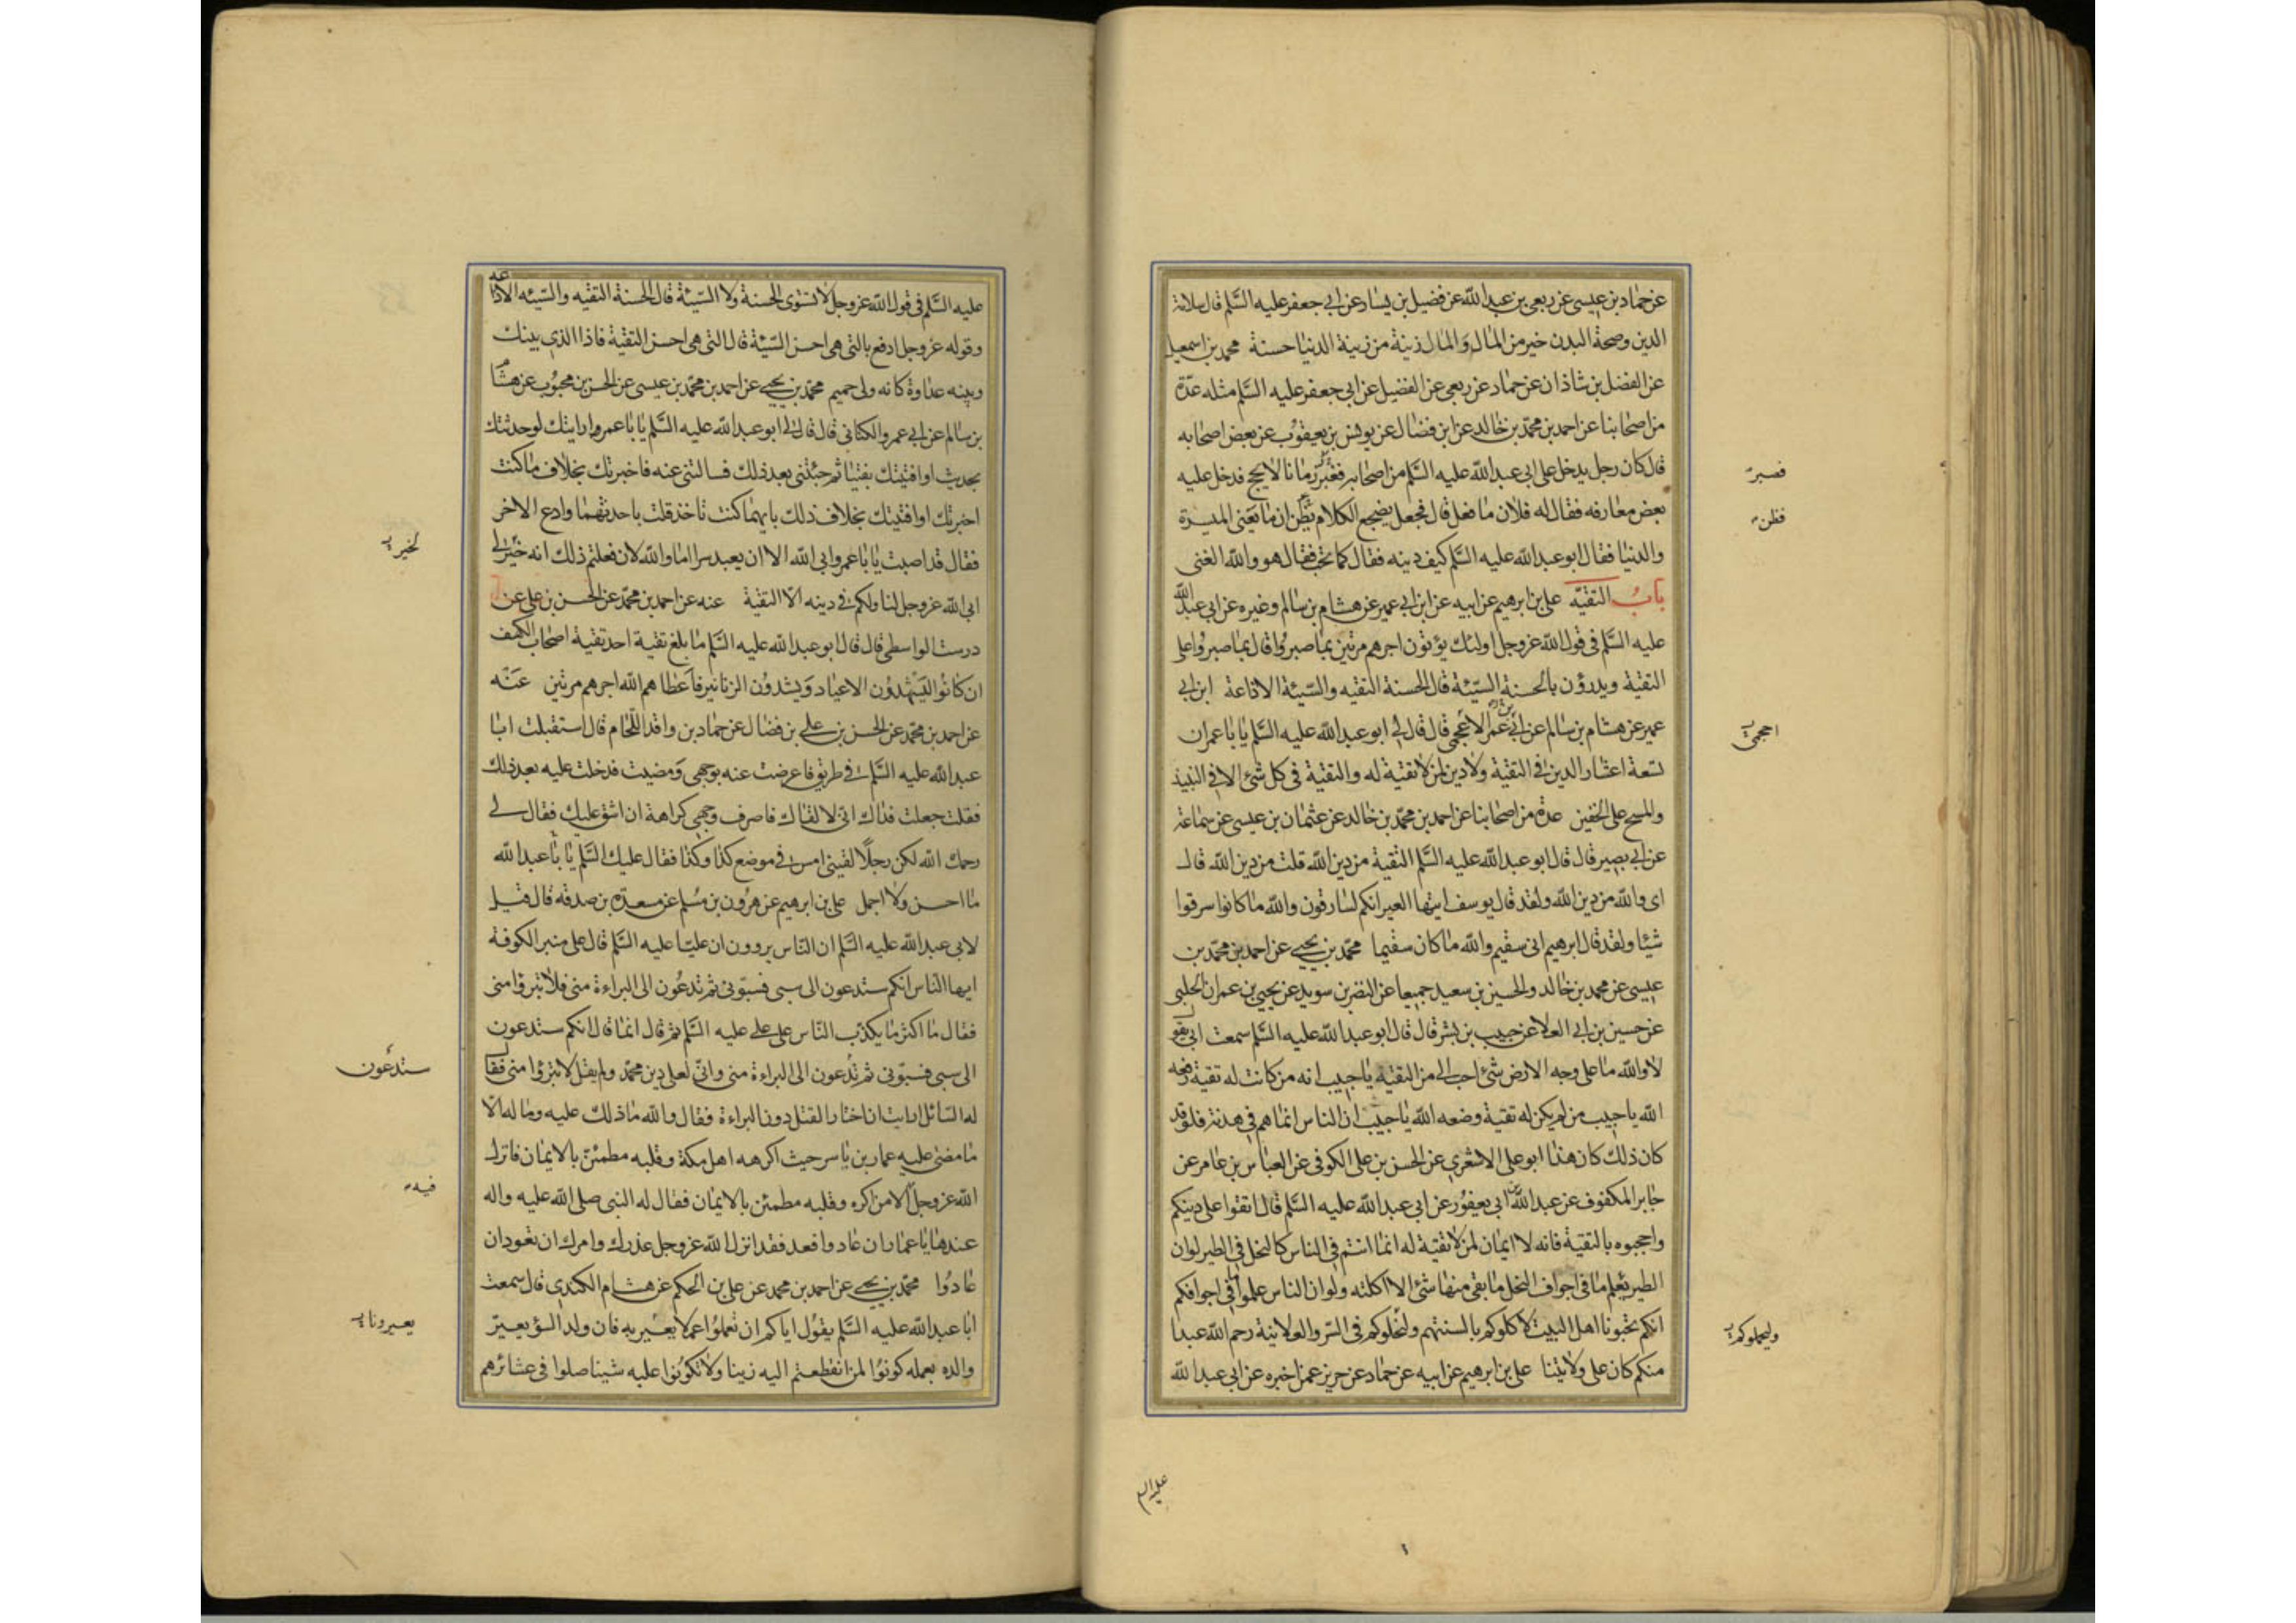 عن حماد بن عيسى عن ربعى بن عبد الله عن فضيل بن يسار عن ابى جعفر عليه السلم قال سلامة
الدين وصحة البدن خير من المال والمال زينة من زينة الدنيا حسنة محمد بن اسمعيل
عن الفضل بن شاذان عن حماد عن ربعى عن الفضيل عن ابى جعفر عليه السلم مثله عدة
من اصحابنا عن احمد بن محمد بن خالد عن ابن فضال عن يونس بن يعقوب عن بعض اصحابه
قال كان رجل يدخل على ابى عبد الله عليه السلم من اصحابه فغبر زمانا لا يحج فدخل عليه
فصبر
بعض معارفه فقال له فلان ما فعل قال فجعل يضجع الكلام يظن ان ما يعنى الميسرة
فظن
والدنيا فقال ابو عبد الله عليه السلم كيف دينه فقال كما تحب فقال هو والله الغنى
باب التقية على بن ابرهيم عن ابيه عن ابن ابى عمير عن هشام بن سالم وغيره عن ابى عبد الله
عليه السلم فى قول الله عز وجل اولئك يؤتون اجرهم مرتين بما صبروا قال بما صبروا على
التقية ويدرؤن بالحسنة السيئة قال الحسنة التقيه والسيئة الاذاعة ابن ابى
عمير عن هشام بن سالم عن ابى عمر الاعجمى قال قال لى ابو عبد الله عليه السلم يا با عمر ان
تسعة اعشار الدين فى التقية ولا دين لمن لا تقية له والتقية فى كل شئ الا فى النبيذ
والمسح على الخفين عدة من اصحابنا عن احمد بن محمد بن خالد عن عثمان بن عيسى عن سماعة
عن ابى بصير قال قال ابو عبد الله عليه السلم التقية من دين الله قلت من دين الله قال
اى والله من دين الله ولقد قال يوسف ايتها العير انكم لسارقون والله ما كانوا سرقوا
شيئا ولقد قال ابرهيم انى سقيم والله ما كان سقيما محمد بن يحيى عن احمد بن محمد بن
عيسى عن محمد بن خالد والحسين بن سعيد جميعا عن النضر بن سويد عن يحيى بن عمران الحلبى
عن حسين بن ابى العلا عن حبيب بن بشر قال قال ابو عبد الله عليه السلم سمعت ابى يقول
لا والله ما على وجه الارض شئ احب الى من التقية يا حبيب انه من كانت له تقية رفعه
الله يا حبيب من لم يكن له تقية وضعه الله يا حبيب ان الناس انما هم فى هدنة فلو قد
كان ذلك كان هذا ابو على الاشعرى عن الحسن بن على الكوفى عن العباس بن عامر عن
جابر المكفوف عن عبد الله بن ابى يعفور عن ابى عبد الله عليه السلم قال اتقوا على دينكم
واحجبوه بالتقية فانه لا ايمان لمن لا تقية له انما انتم فى الناس كالنحل فى الطير لو ان
الطير يعلم ما فى اجواف النحل ما بقى منها شئ الا اكلته ولو ان الناس علموا ما فى اجوافكم
انكم تحبونا اهل البيت لاكلوكم بالسنتهم ولنحلوكم فى السر والعلانية رحم الله عبدا
منكم كان على ولايتنا على بن ابرهيم عن ابيه عن حماد عن حريز عمن اخبره عن ابى عبد الله
عليه السلم
عليه السلم فى قول الله عز وجل لا تستوى الحسنة ولا السيئة قال الحسنة التقيه والسيئه الاذاعه
وقوله عز وجل ادفع بالتى هى احسن السيئة قال التى هى احسن التقية فاذا الذى بينك
وبينه عداوة كانه ولى حميم محمد بن يحيى عن احمد بن محمد بن عيسى عن الحسن بن محبوب عن هشام
بن سالم عن ابى عمرو الكنانى قال قال لى ابو عبد الله عليه السلم يا با عمرو ارايتك لو حدثتك
بحديث او افتيتك بفتيا ثم جئتنى بعد ذلك فسالتنى عنه فاخبرتك بخلاف ما كنت
اخبرتك او افتيتك بخلاف ذلك بايهما كنت تاخذ قلت باحدثهما وادع الاخر
فقال قد اصبت يا با عمرو ابى الله الا ان يعبد سرا اما والله لان فعلتم ذلك انه خير لى
ابى الله عز وجل لنا ولكم فى دينه الا التقية عنه عن احمد بن محمد عن الحسن بن على عن
درست الواسطى قال قال ابو عبد الله عليه السلم ما بلغ تقية احد تقية اصحاب الكهف
ان كانوا ليشهدون الاعياد ويشدون الزنانير فاعطاهم الله اجرهم مرتين عنه
عن احمد بن محمد عن الحسن بن على بن فضال عن حماد بن واقد اللحام قال استقبلت ابا
عبد الله عليه السلم فى طريق فاعرضت عنه بوجهى ومضيت فدخلت عليه بعد ذلك
فقلت جعلت فداك انى لالقاك فاصرف وجهى كراهة ان اشق عليك فقال لى
رحمك الله لكن رجلا لقينى امس فى موضع كذا وكذا فقال عليك السلم يا با عبد الله
ما احسن ولا اجمل على بن ابرهيم عن هرون بن مسلم عن مسعدة بن صدقه قال قيل
لابى عبد الله عليه السلم ان الناس يروون ان عليا عليه السلم قال على منبر الكوفة
ايها الناس انكم ستدعون الى سبى فسبونى ثم تدعون الى البراءة منى فلا تبرؤا منى
فقال ما اكثر ما يكذب الناس على على عليه السلم ثم قال انما قال انكم ستدعون
الى سبى فسبونى ثم تدعون الى البراءة منى وانى لعلى دين محمد ولم يقل لا تبرؤا منى فقال
ستدعون
له السائل ارايت ان اختار القتل دون البراءة فقال والله ما ذلك عليه وما له الا
ما مضى عليه عمار بن ياسر حيث اكرهه اهل مكة وقلبه مطمئن بالايمان فانزل
فيه
الله عز وجل الا من اكره وقلبه مطمئن بالايمان فقال له النبى صلى الله عليه واله
عندها يا عمار ان عادوا فعد فقد انزل الله عز وجل عذرك وامرك ان تعود ان
عادوا محمد بن يحيى عن احمد بن محمد عن على بن الحكم عن هشام الكندى قال سمعت
ابا عبد الله عليه السلم يقول اياكم ان تعملوا عملا يعير به فان ولد السؤ يعير
يعيرونا به
والده بعمله كونوا لمن انقطعتم اليه زينا ولا تكونوا عليه شينا صلوا فى عشائرهم